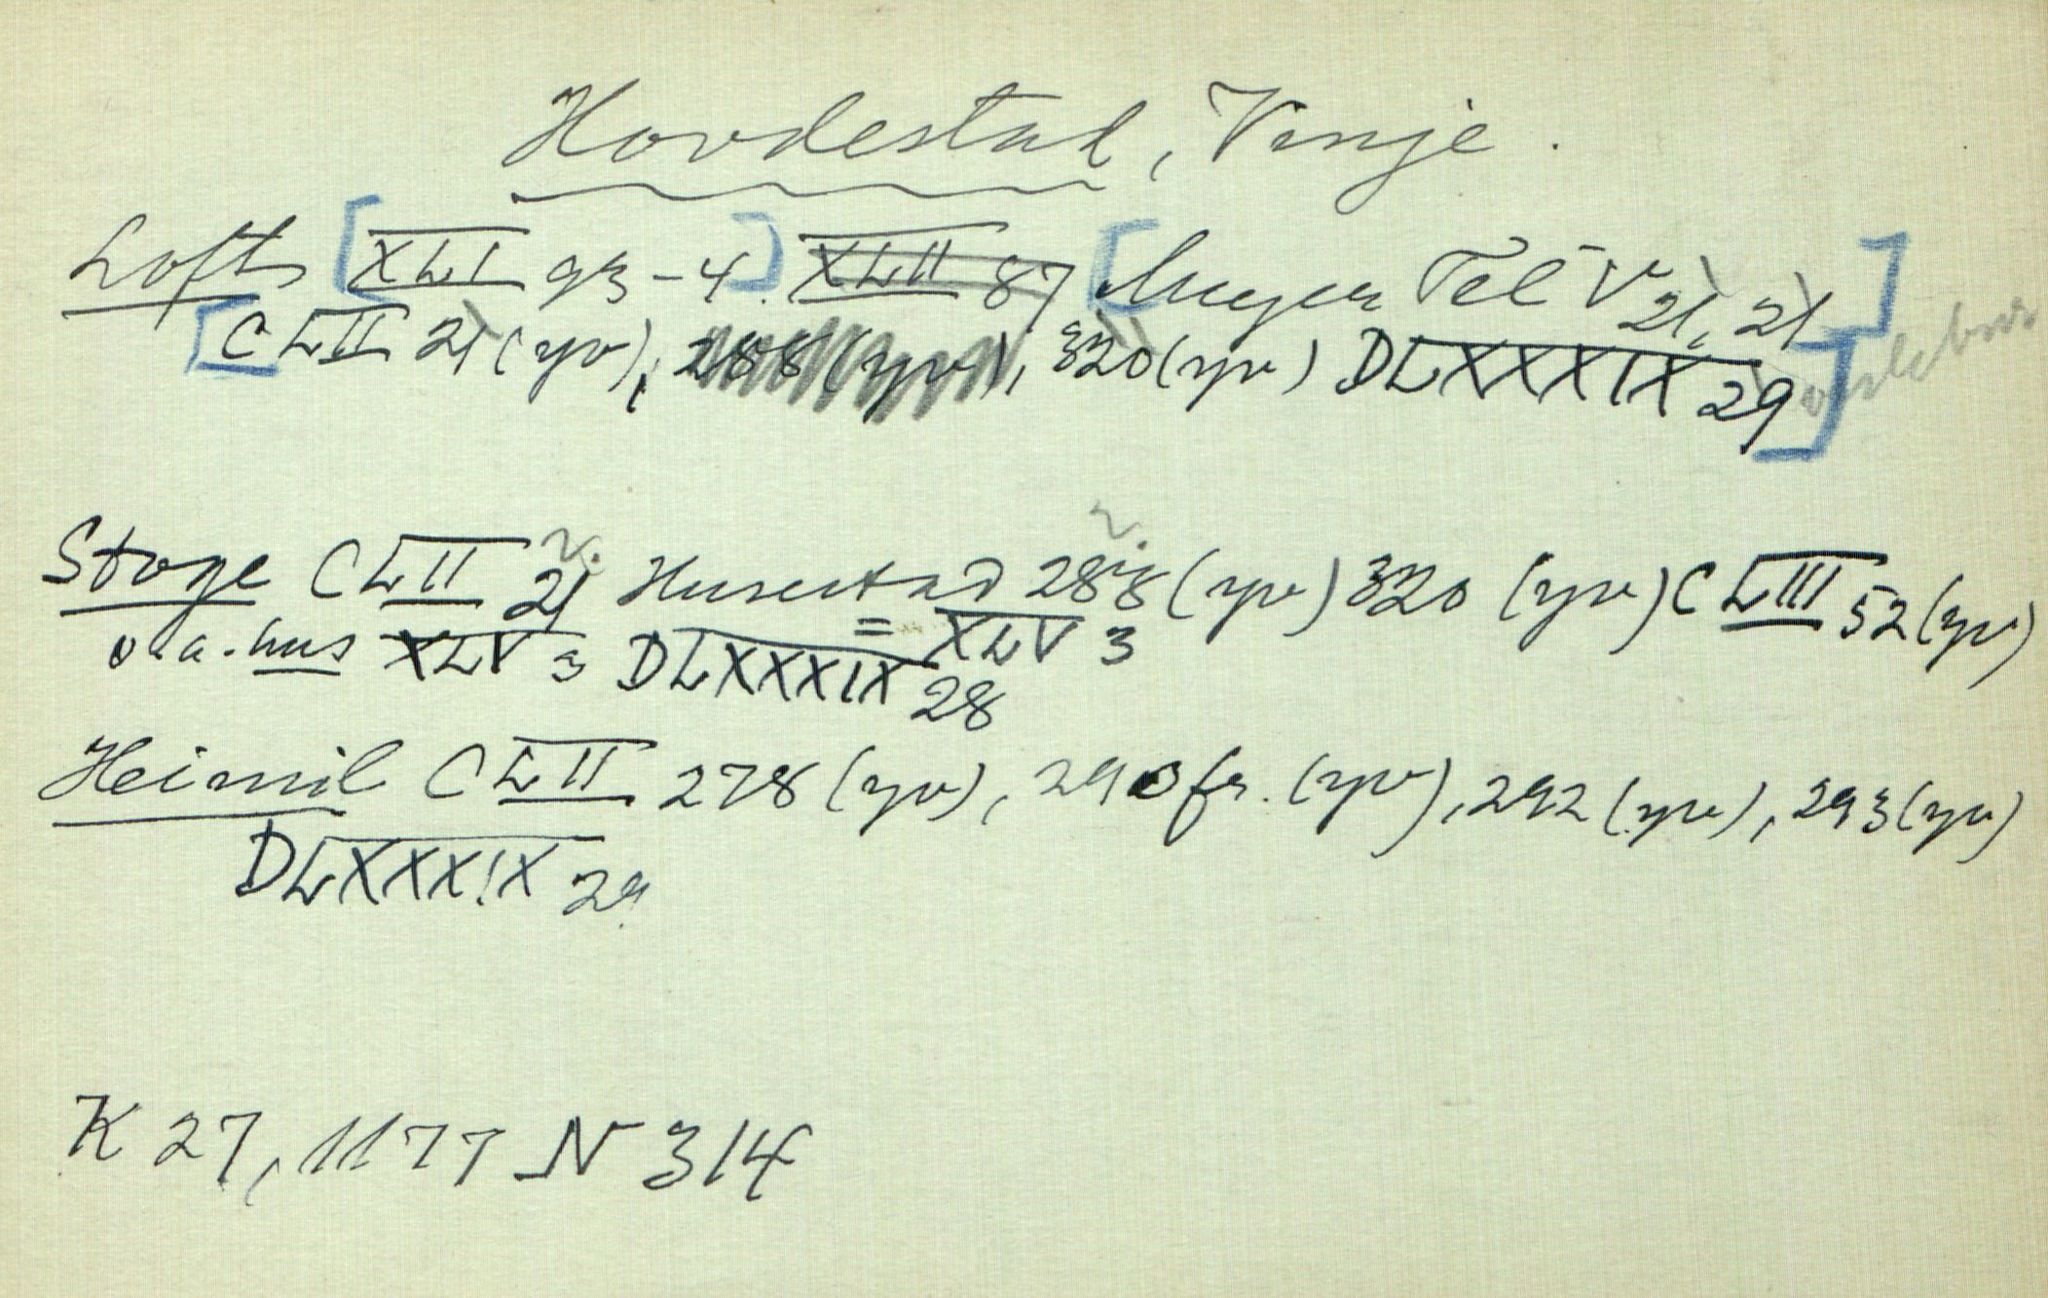 Hovdestad, Vinje.
Loft [XLI 93-4.] XLII 87 [Meyer Tel V 21, 21]
[CLII 21 (yv), 288 (yv), 320 (yv) DLXXXIX 29]
Stoge CLII 21 Husestad 288 (yv) 320 (yv) CLIII 52 (yv)
o.a. hus XLV 3 DLXXXIX 28 = XLV 3
Heimil CLII 278 (yv), 290 fr. (yv), 292 (yv), 293 (yv)
DLXXXIX 29
K 27, 1177 N 314